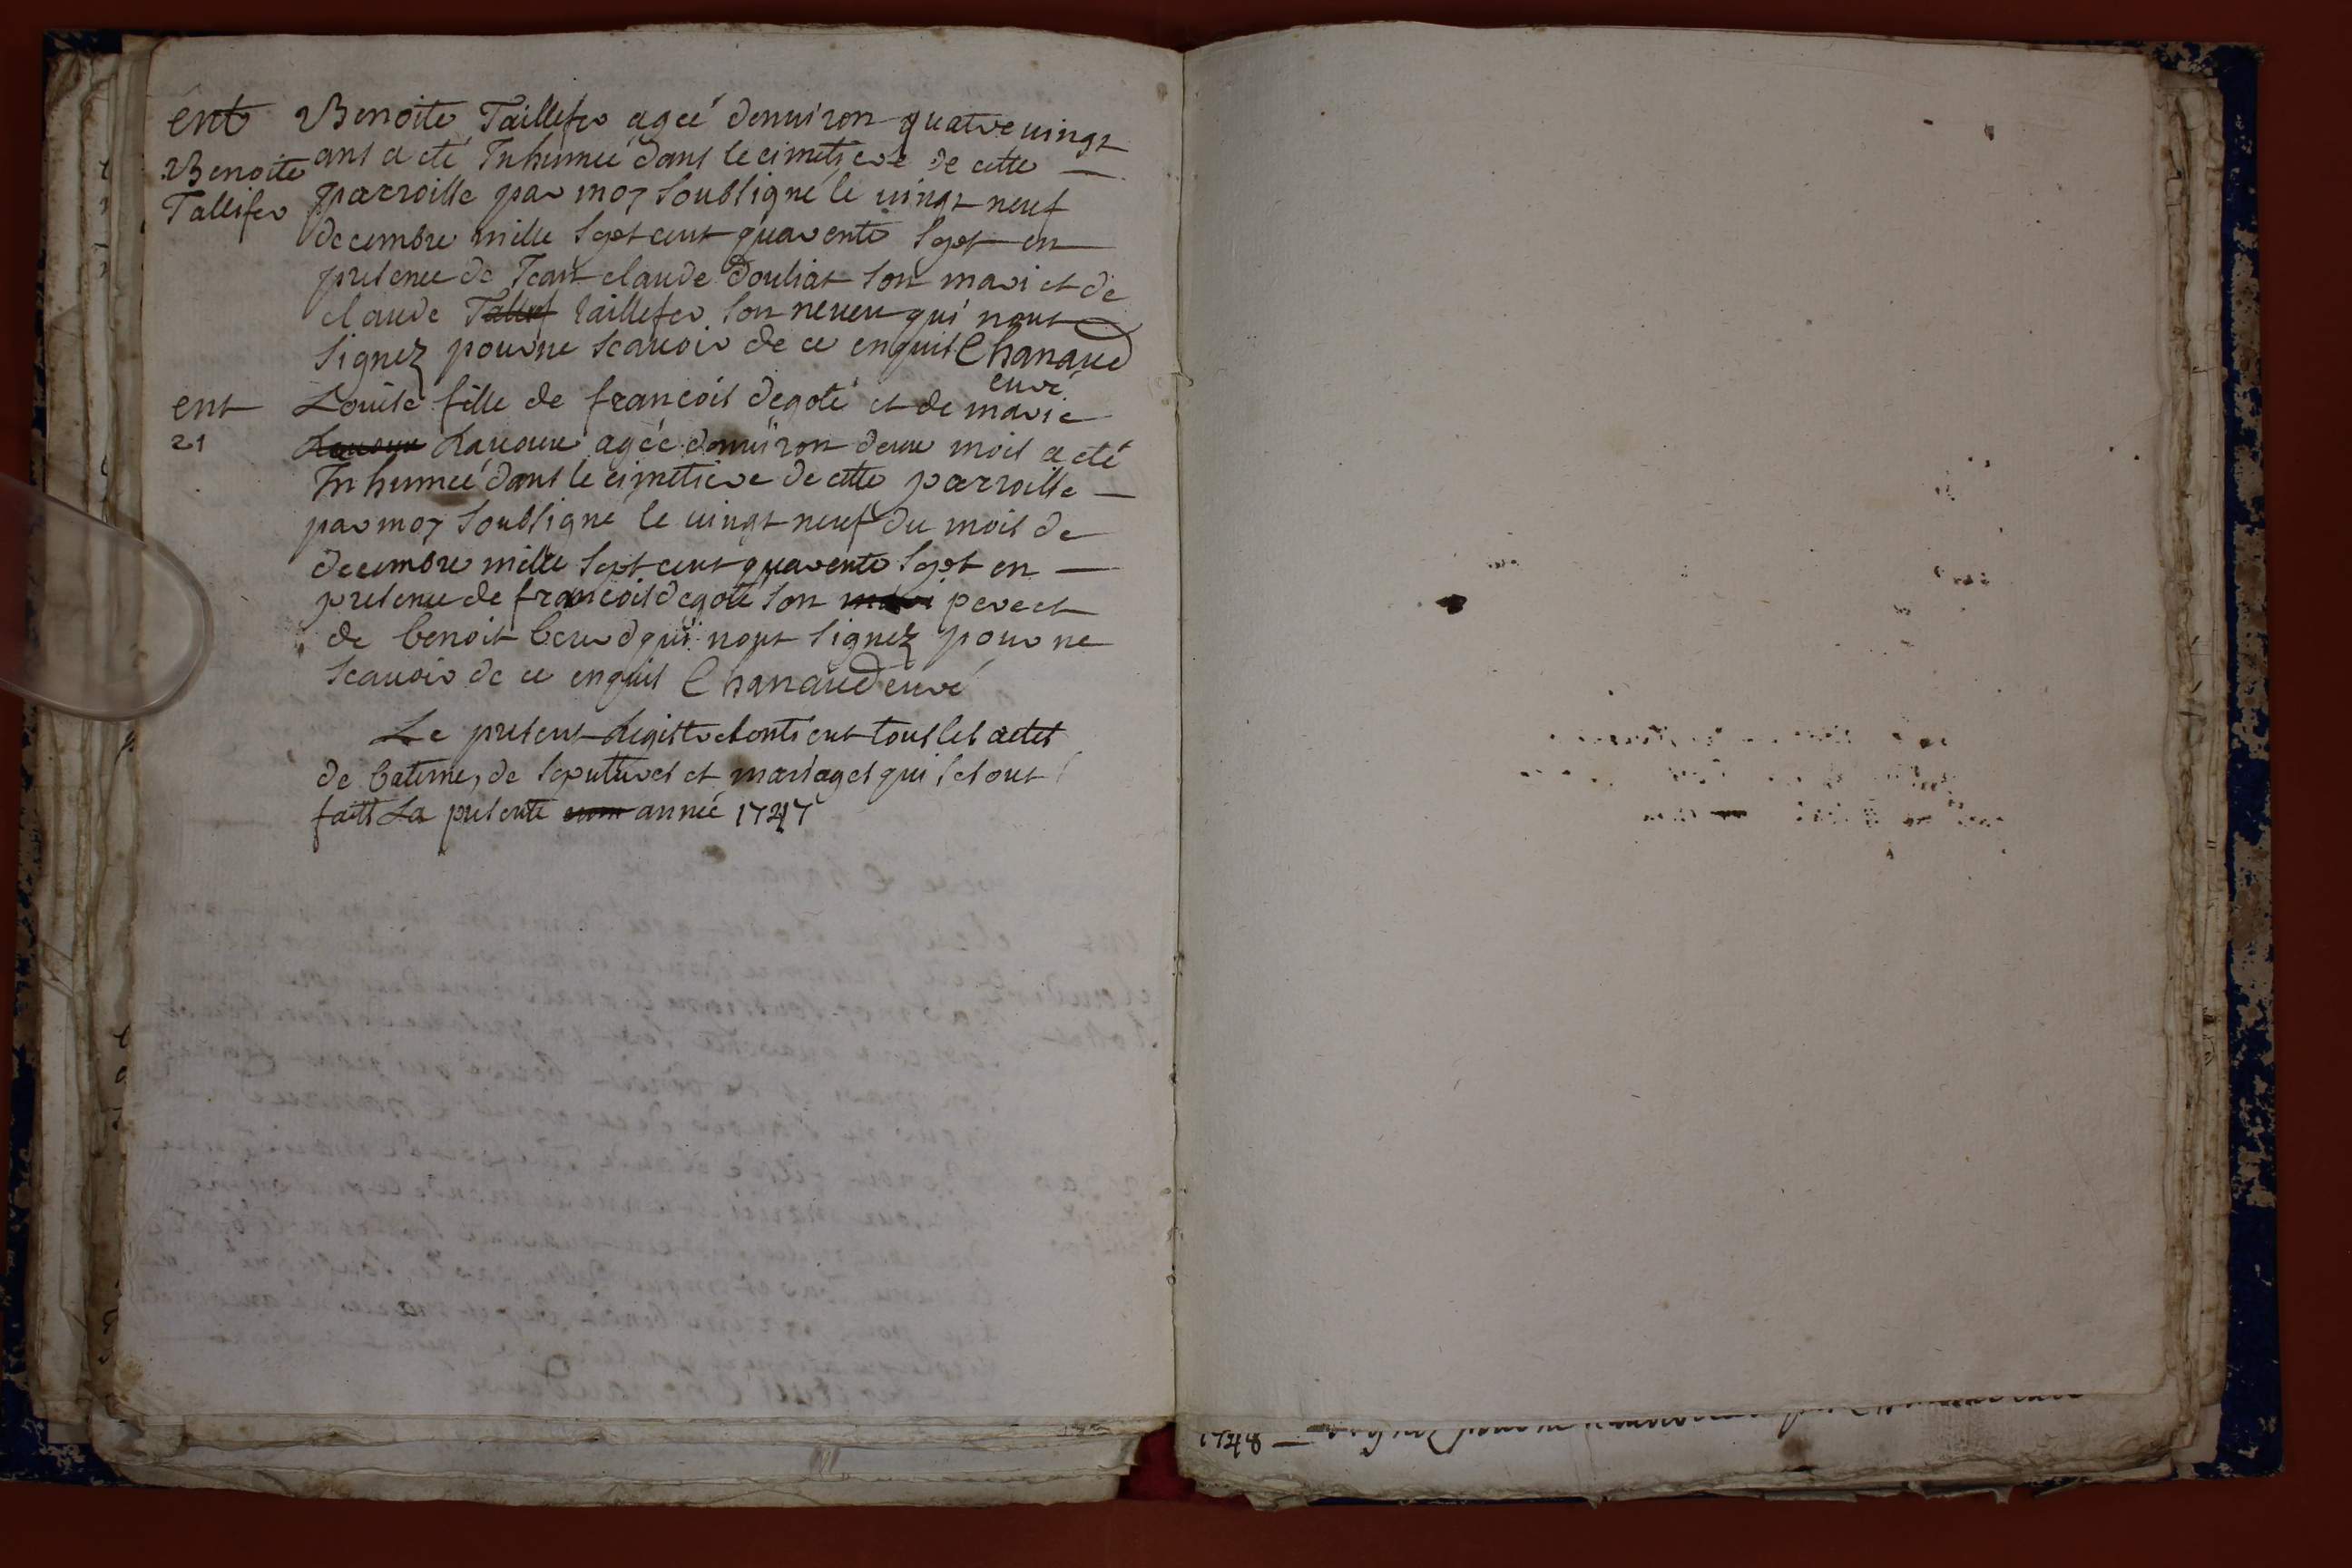 ent Benoite Taillefer ageé denuiron quatre uingt
Benoite ans a eté Inhumeé dans le cimetiere de cette
Tallifer parroisse par moy soubsigné le uingt neuf
decembre mille sept cent quarente sept en
presence de Jean claude douliat son mari et de
claude Tallef taillefer son neueu qui nont
signez pour ne scauoir de ce enquis Chanaud
curé
ent Louise fille de francois degoté et de marie
21 Lauoure Lauoure ageé denuiron deux mois a eté
Inhumeé dans le cimetiere de cette parroisse
par moy soubsigné le uingt neuf du mois de
decembre mille sept cent quarente sept en
presence de francois degoté son mari pere et
de benoit bererd qui nont signez pour ne
scauoir de ce enquis Chanaud curé
Le present Registre contient tous les actes
de bateme, de sepultures et mariages qui se sont
faits La presente année 1747
1748